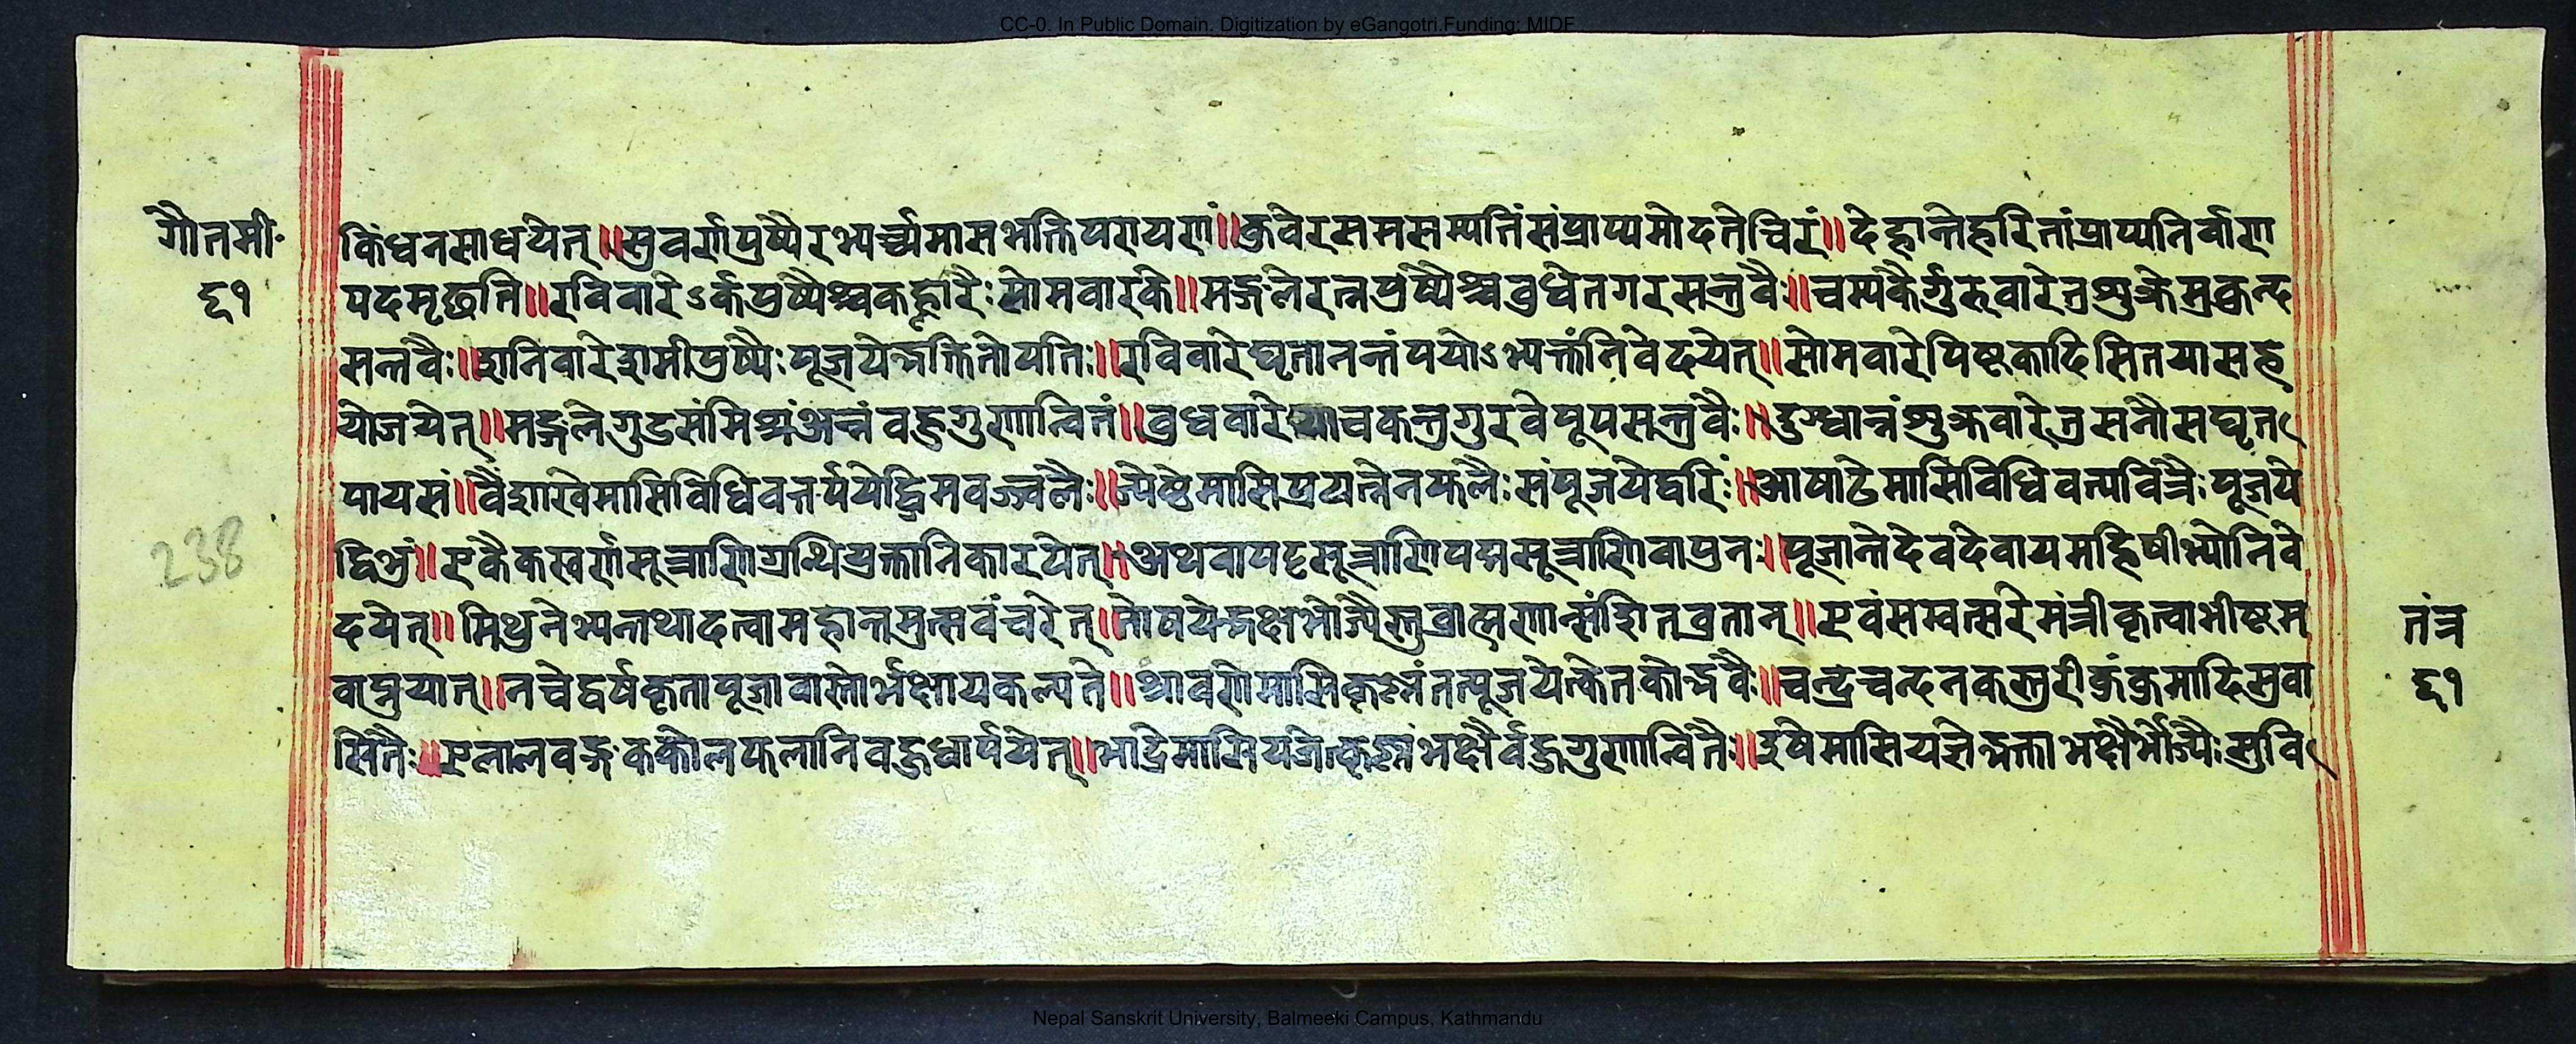 CC-0. In Public Domain. Digitization by eGangotri.Funding: MIDF
गौतमी॰
६१
किंधनसाधयेत्॥सुवर्णपुष्पैरभ्यर्च्च्यमासभक्तिपरायणं॥कुवेरसमसम्पत्तिंसंप्राप्यमोदतेचिरं॥देहान्तेहरितांप्राप्यनिर्वाण
पदमृछति॥रविवारेऽर्कपुष्पैश्चकह्लारैःसोमवारके॥मङ्गलेरत्नपुष्पैश्चबुधेतगरसन्त्रवैः॥चम्पकैर्गुरुवारेतुशुक्रेमुकुन्द
सन्तवैः॥शनिवारेशमीपुष्पैःपूजयेद्भक्तितोयतिः॥रविवारेघृतानन्तंपयोऽभ्यक्तंनिवेदयेत्॥सोमवारेपिष्टकादिसितयासह
योजयेत्॥मङ्गलेगुडसंमिश्रंअन्नंवहुगुणान्वितं॥बुधवारे चकन्तुगुरवेपूपसन्त्रवैः॥दुग्धान्नंशुक्रवारेतुसनौसघृत
पायसं॥वैशाखेमासिविधिवत्तर्पयेद्धिमवज्ज्वलैः॥ज्येष्ठेमासिप्रयत्नेनफलैःसंपूजयेद्धरिं॥आषाढेमासिविधिवत्पवित्रैःपूजये
द्विभुं॥एकैकस्वर्णसूत्राणिग्रन्थियुक्तानिकारयेत्॥अथवापट्टसूत्राणिपद्मसूत्राणिवापुनः॥पूजान्तेदेवदेवायमहिषीभ्योनिवे
दयेत्॥मिथुनेभ्यन्तथादत्वामहान्तमुत्सवंचरेत्॥तोषयेद्भक्षभोज्यैस्तुब्राह्मणान्संशितव्रतान्॥एवंसम्वत्सरेमंत्रीकृत्वाभीष्टम
वाप्नुयात्॥नचेद्वर्षकृतापूजावास्तोर्भक्षायकल्पते॥श्रावणेमासिकृष्णंतत्पूजयेत्केतकोद्भवैः॥चन्द्रचन्दनकस्तुरीकुंकुमादिसुवा
सितैः॥एलालवङ्गकक्कोलफलानिवहुधार्पयेत्॥भाद्रेमासियजेत्कृष्णंभक्षैर्वहुगुणान्वितैः॥इषेमासियजेद्भक्ताभक्षैर्भोज्यैःसुवि
238
तंत्र
६१
Nepal Sanskrit University, Balmeeki Campus, Kathmandu